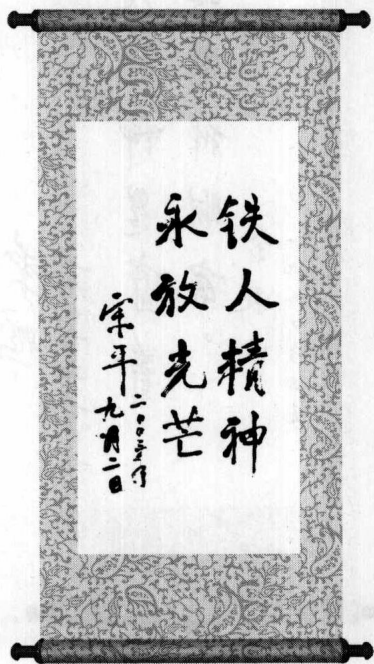 铁人精神
永放光芒
宋平
二〇〇三年
九月二日